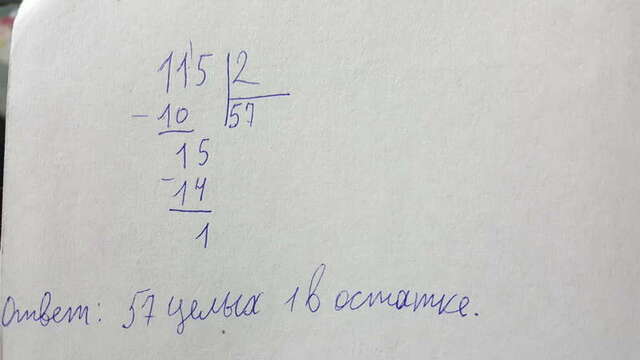 115 2
- 10 57
15
- 14
1
Ответ: 57 целых 1 в остатке.